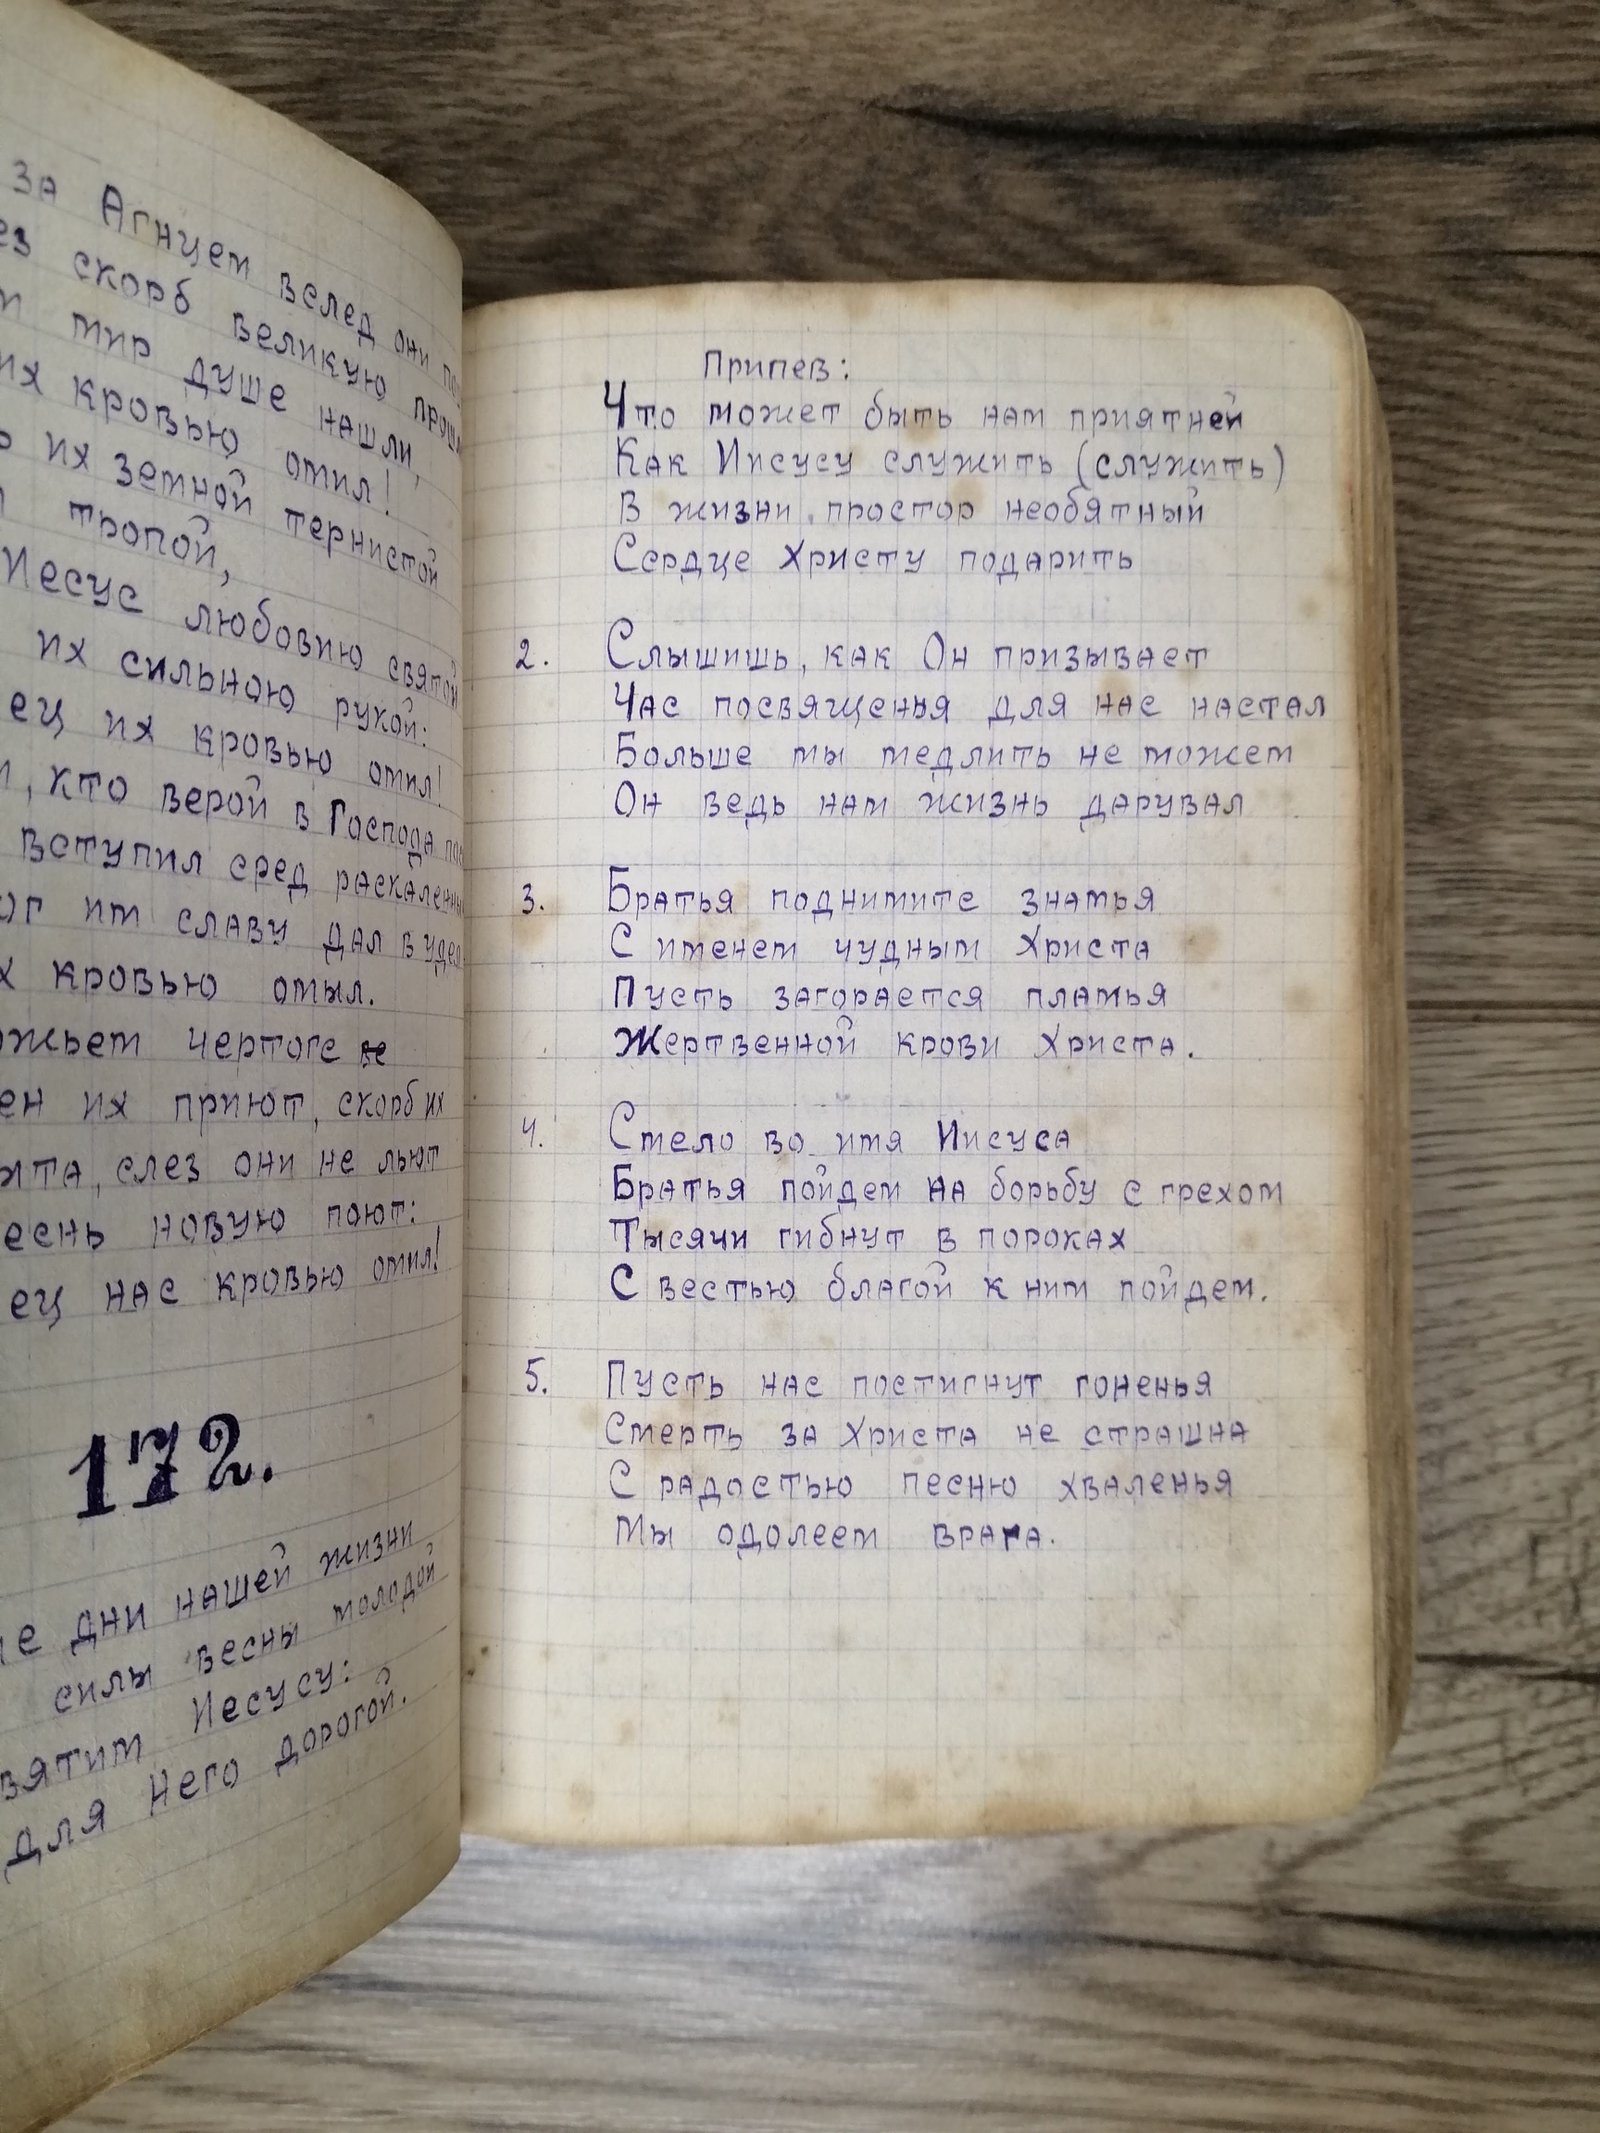 за Агнцем вслед они
скорб великую
мир душе нашли,
их кровью отил!
их земной тернистой
тропой,
Иесус любовию святой
их сильною рукой:
ец их кровью отил!
, кто верой в Господа
вступил сред раскаленны
ог им славу дал в удел
х кровью омыл.
ожьем чертоге
ен их приют, скорб их
ыта, слез они не льют
еснь новую поют:
ец нас кровью отил!
172.
е дни нашей жизни
силы весны молодой
вятим Иесусу:
для Него дорогой.
Припев:
Что может быть нам приятней
Как Иисусу служить (служить)
В жизни, простор необятный
Сердце Христу подарить
2. Слышишь, как Он призывает
Час посвященья для нас настал
Больше мы медлить не можем
Он ведь нам жизнь дарувал
3. Братья поднимите знамья
С именем чудным Христа
Пусть загорается пламья
Жертвенной крови Христа.
4. Смело во имя Иисуса
Братья пойдем на борьбу с грехом
Тысячи гибнут в пороках
С вестью благой к ним пойдем.
5. Пусть нас постигнут гоненья
Смерть за Христа не страшна
С радостью песню хваленья
Мы одолеем врага.